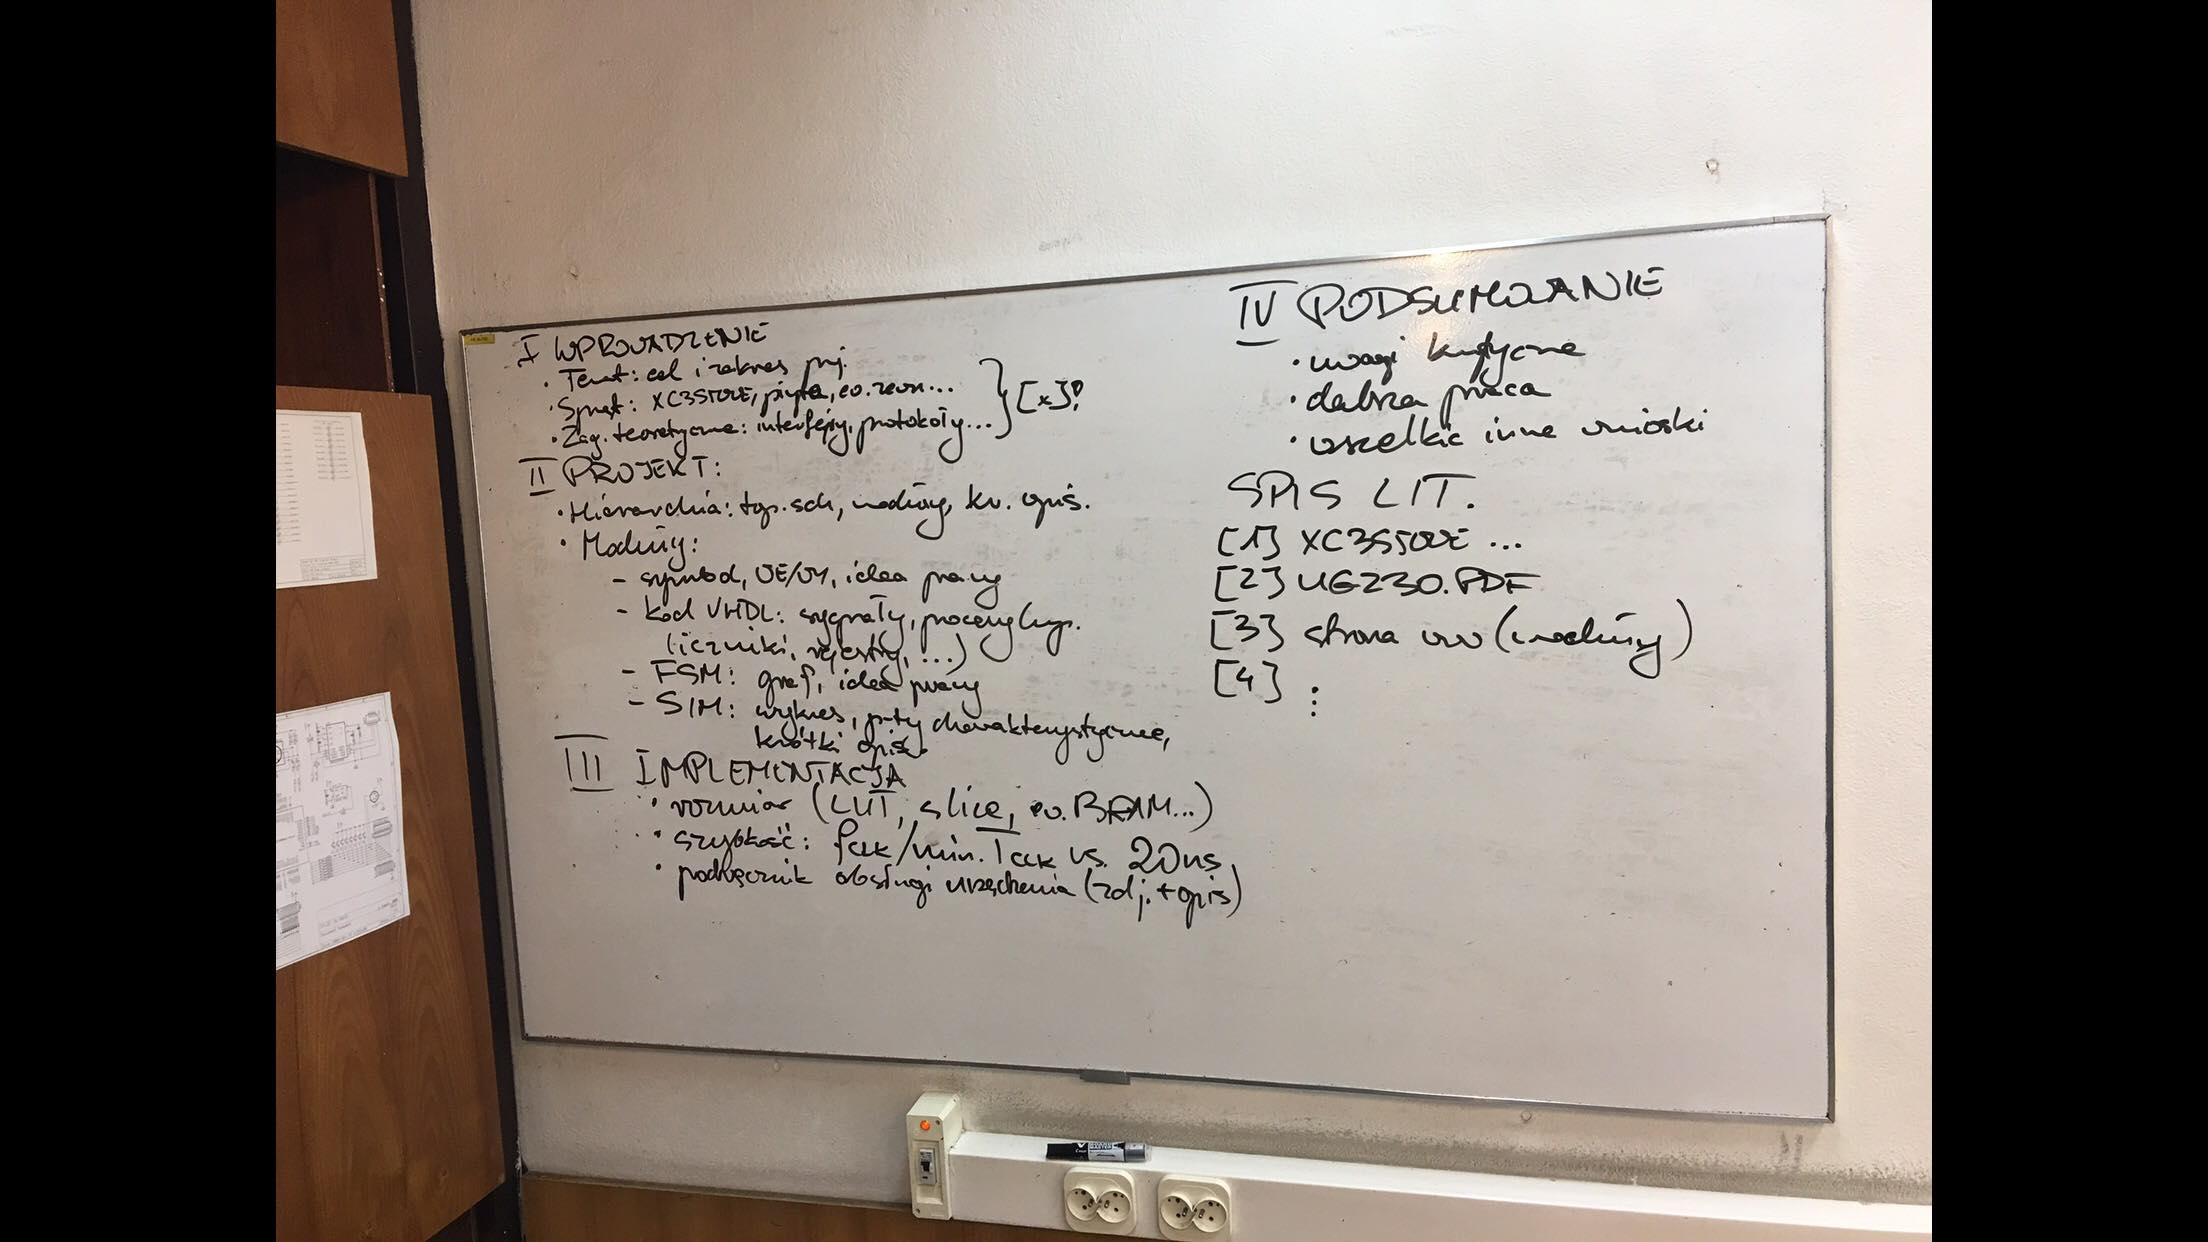 I WPROWADZENIE
• Temat: cel i zakres proj.
• Sprzęt: XC3S500E, płyta, ew. zewn...
• Zag. teoretyczne: interfejsy, protokoły...
} [x]!
II PROJEKT:
• Hierarchia: top.sch, moduły, kr. opis.
• Moduły:
- symbol, WE/WY, idea pracy
- kod VHDL: sygnały, procesy (np.
liczniki, rejestry, ...)
- FSM: graf, idea pracy
- SIM: wykres, pkty charakterystyczne,
krótki opis.
III IMPLEMENTACJA
• rozmiar (LUT, slice, ew. BRAM...)
• szybkość: fclk/min. Tclk vs. 20ns
• podręcznik obsługi urządzenia (zdj. + opis)
IV PODSUMOWANIE
• uwagi krytyczne
• dalsza praca
• wszelkie inne wnioski
SPIS LIT.
[1] XC3S500E ...
[2] UG230.PDF
[3] strona www (moduły)
[4] ⋮